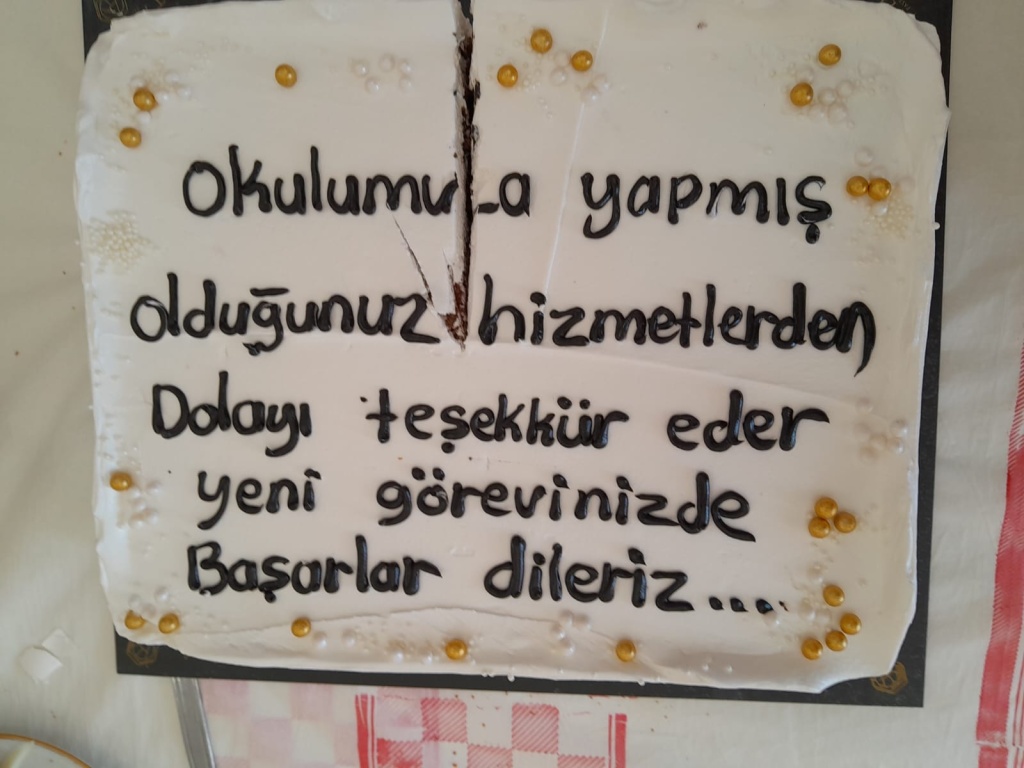 Okulumuza yapmış
olduğunuz hizmetlerden
Dolayı teşekkür eder
yeni görevinizde
Başarlar dileriz....